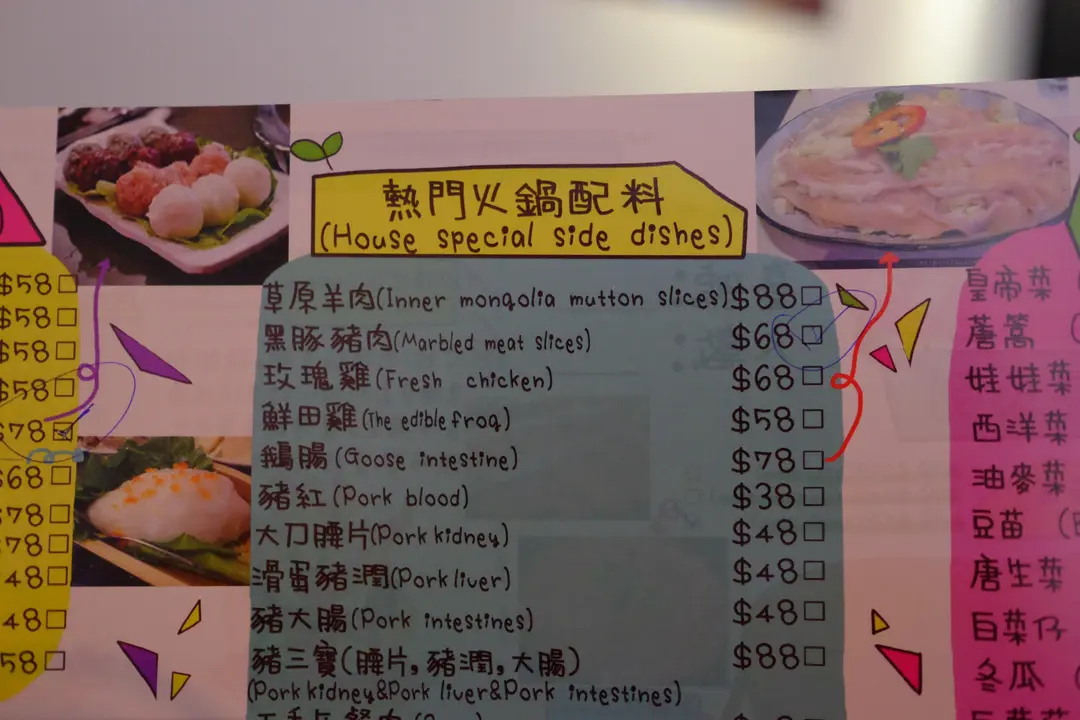 熱門火鍋配料
(House special side dishes)
草原羊肉(Inner mongolia mutton slices)$88□
黑豚豬肉(Marbled meat slices) $68□
玫瑰雞(Fresh chicken) $68□
鮮田雞(The edible frog) $58□
鵝腸(Goose intestine) $78□
豬紅(Pork blood) $38□
大刀腰片(Pork kidney) $48□
滑蛋豬潤(Pork liver) $48□
豬大腸(Pork intestines) $48□
豬三寶(腰片,豬潤,大腸) $88□
(Pork kidney&Pork liver&Pork intestines)
$58□
$58□
$58□
$58□
$78□
$68□
$78□
$78□
48□
48□
58□
皇帝菜
茼蒿
娃娃菜
西洋菜
油麥菜
豆苗
唐生菜
白菜仔
冬瓜